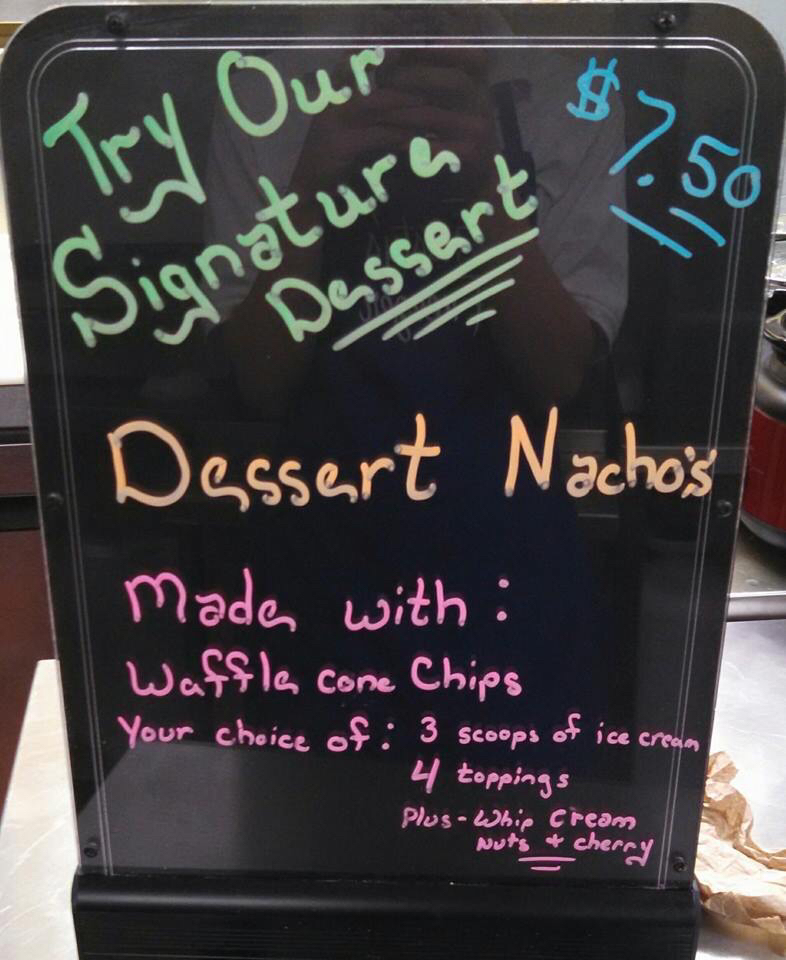 Try Our
$7.50
Signature
Dessert
Dessert Nacho's
Made with:
Waffle cone Chips
Your choice of: 3 scoops of ice cream
4 toppings
Plus - Whip Cream
Nuts + cherry